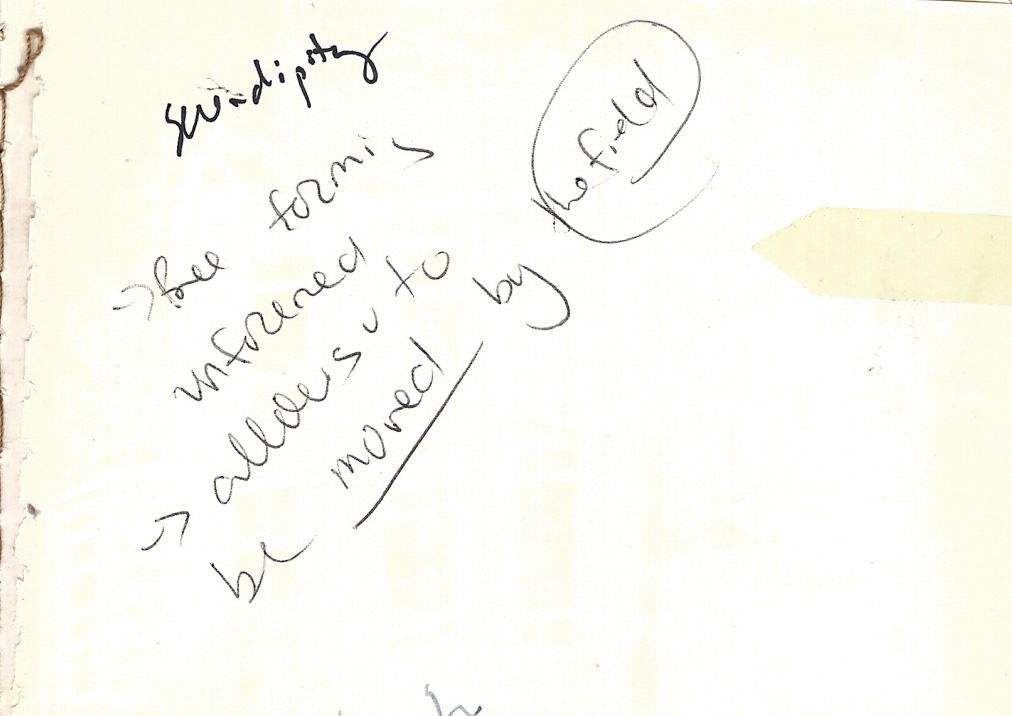 serendipity
→ free forming
unforened
→ allows u to
be moved by
the field